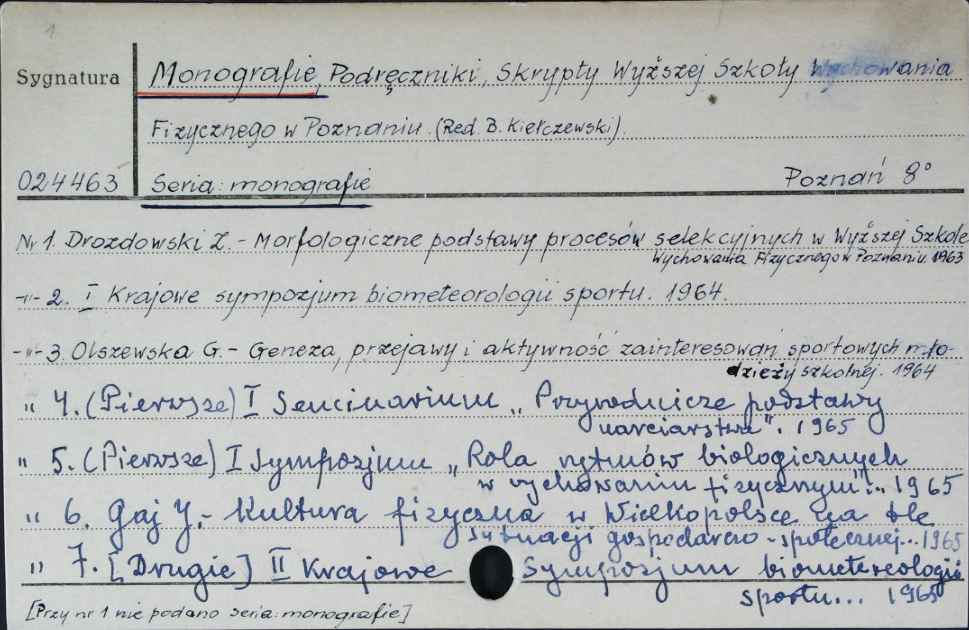 1
Sygnatura Monografie, Podręczniki, Skrypty Wyższej Szkoły Wychowania
Fizycznego w Poznaniu. (Red. B. Kiełczewski).
024463 Seria: monografie Poznań 8°
Nr 1. Drozdowski Z. - Morfologiczne podstawy procesów selekcyjnych w Wyższej Szkole
Wychowania Fizycznego w Poznaniu. 1963
-"- 2. I Krajowe sympozjum biometeorologii sportu. 1964.
-"- 3. Olszewska G. - Geneza, przejawy i aktywność zainteresowań sportowych mło-
dzieży szkolnej. 1964
" 4. (Pierwsze) I Seminarium „Przyrodnicze podstawy
narciarstwa". 1965
" 5. (Pierwsze) I Sympozjum „Rola rytmów biologicznych
w wychowaniu fizycznym"... 1965
" 6. Gaj J. - Kultura fizyczna w Wielkopolsce na tle
sytuacji gospodarczo - społecznej... 1965
" 7. [Drugie] II Krajowe Sympozjum biometereologii
sportu... 1965
[Przy nr 1 nie podano seria: monografie]